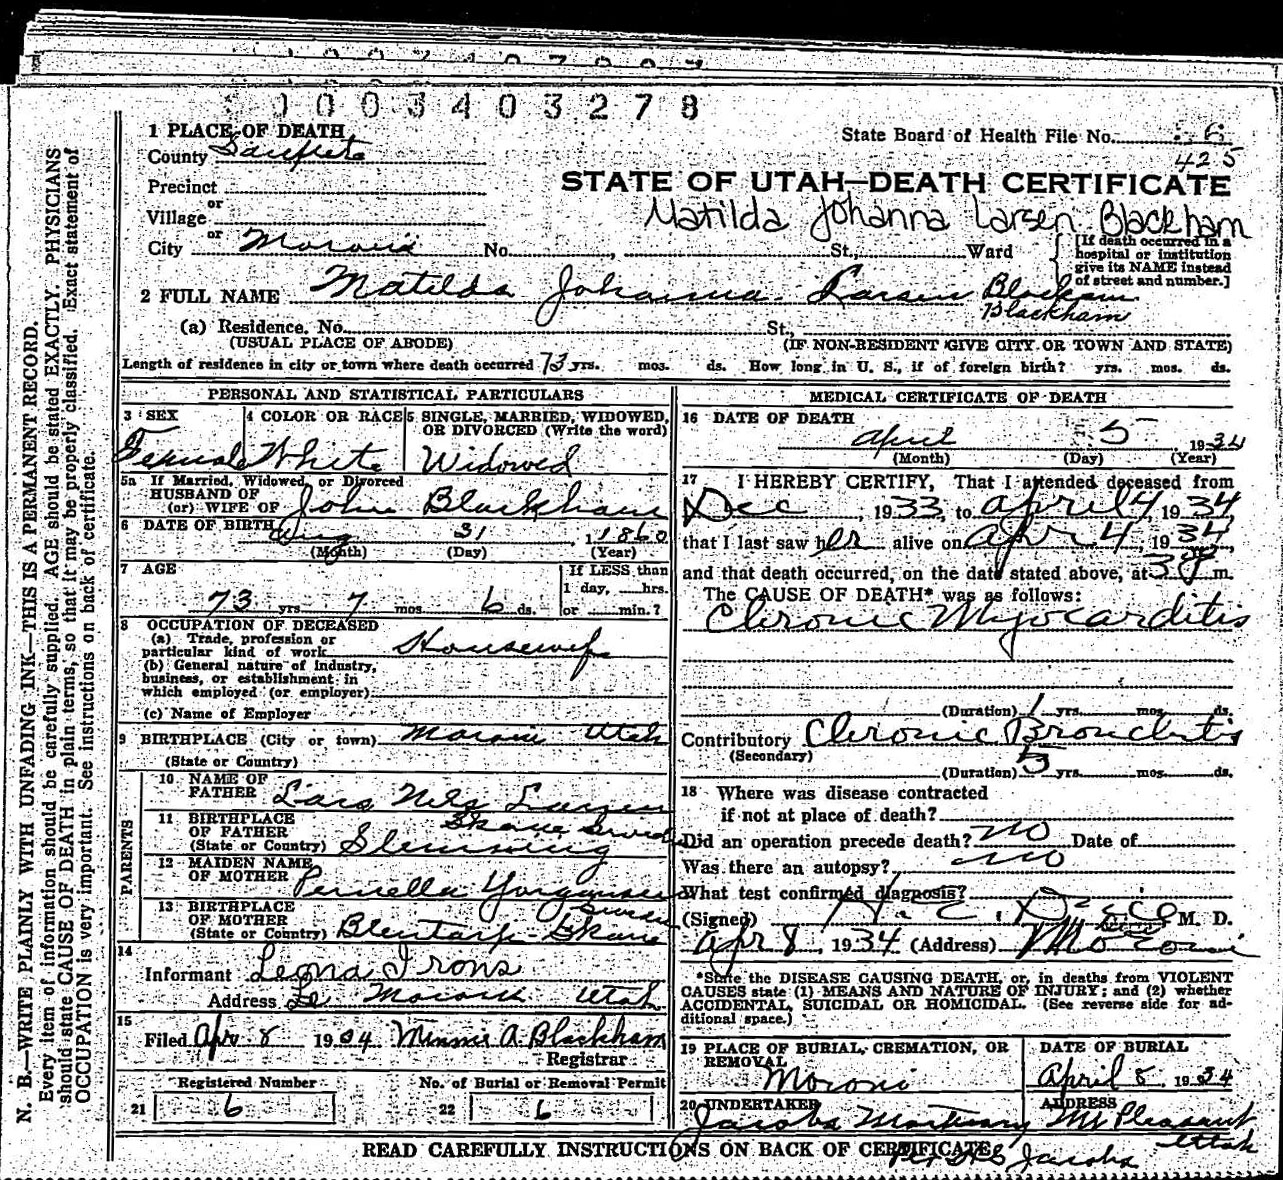 1003403278
1 PLACE OF DEATH
County Sanpete
State Board of Health File No. 6
425
Precinct
or
Village
or
City Moroni No. , St., Ward
STATE OF UTAH—DEATH CERTIFICATE
Matilda Johanna Larsen Blackham
[If death occurred in a hospital or institution give its NAME instead of street and number.]
2 FULL NAME Matilda Johanna Larsen Blackham
Blackham
(a) Residence. No. St.,
(USUAL PLACE OF ABODE) (IF NON-RESIDENT GIVE CITY OR TOWN AND STATE)
Length of residence in city or town where death occurred 73 yrs. mos. ds. How long in U. S., if of foreign birth? yrs. mos. ds.
PERSONAL AND STATISTICAL PARTICULARS
3 SEX
Female
4 COLOR OR RACE
White
5 SINGLE, MARRIED, WIDOWED,
OR DIVORCED (Write the word)
Widowed
5a If Married, Widowed, or Divorced
HUSBAND OF
(or) WIFE OF John Blackham
6 DATE OF BIRTH Aug 31, 1860
(Month) (Day) (Year)
7 AGE
73 yrs 7 mos 6 ds.
If LESS than
1 day, hrs.
or min.?
8 OCCUPATION OF DECEASED
(a) Trade, profession or
particular kind of work Housewife
(b) General nature of industry,
business, or establishment in
which employed (or employer)
(c) Name of Employer
9 BIRTHPLACE (City or town) Moroni Utah
(State or Country)
PARENTS
10 NAME OF
FATHER Lars Nels Larsen
11 BIRTHPLACE
OF FATHER Skane Sweden
(State or Country) Slemming
12 MAIDEN NAME
OF MOTHER Pernella
13 BIRTHPLACE Sweden
OF MOTHER
(State or Country) Blentarp - Skane
14
Informant Leona Irons
Address Moroni Utah
15
Filed Apr 8 1934 Minnie A. Blackham
Registrar
Registered Number
21 6
No. of Burial or Removal Permit
22 6
MEDICAL CERTIFICATE OF DEATH
16 DATE OF DEATH
April 5 1934
(Month) (Day) (Year)
17 I HEREBY CERTIFY, That I attended deceased from
Dec , 1933, to April 4, 1934
that I last saw her alive on Apr 4, 1934,
and that death occurred, on the date stated above, at 3 P m.
The CAUSE OF DEATH* was as follows:
Chronic Myocarditis
(Duration) 1 yrs. mos. ds.
Contributory Chronic Bronchitis
(Secondary)
(Duration) 5 yrs. mos. ds.
18 Where was disease contracted
if not at place of death?
Did an operation precede death? no Date of
Was there an autopsy? no
What test confirmed diagnosis?
(Signed) H. C. M. D.
Apr 8, 1934 (Address) Moroni
*State the DISEASE CAUSING DEATH, or, in deaths from VIOLENT
CAUSES state (1) MEANS AND NATURE OF INJURY; and (2) whether
ACCIDENTAL, SUICIDAL OR HOMICIDAL. (See reverse side for ad-
ditional space.)
19 PLACE OF BURIAL, CREMATION, OR
REMOVAL
Moroni
DATE OF BURIAL
April 8, 1934
20 UNDERTAKER
Jacobs Mortuary
ADDRESS
Mt Pleasant
Utah
READ CAREFULLY INSTRUCTIONS ON BACK OF CERTIFICATE.
Per Jacobs
N. B.—WRITE PLAINLY WITH UNFADING INK—THIS IS A PERMANENT RECORD.
Every item of information should be carefully supplied. AGE should be stated EXACTLY. PHYSICIANS
should state CAUSE OF DEATH in plain terms, so that it may be properly classified. Exact statement of
OCCUPATION is very important. See instructions on back of certificate.